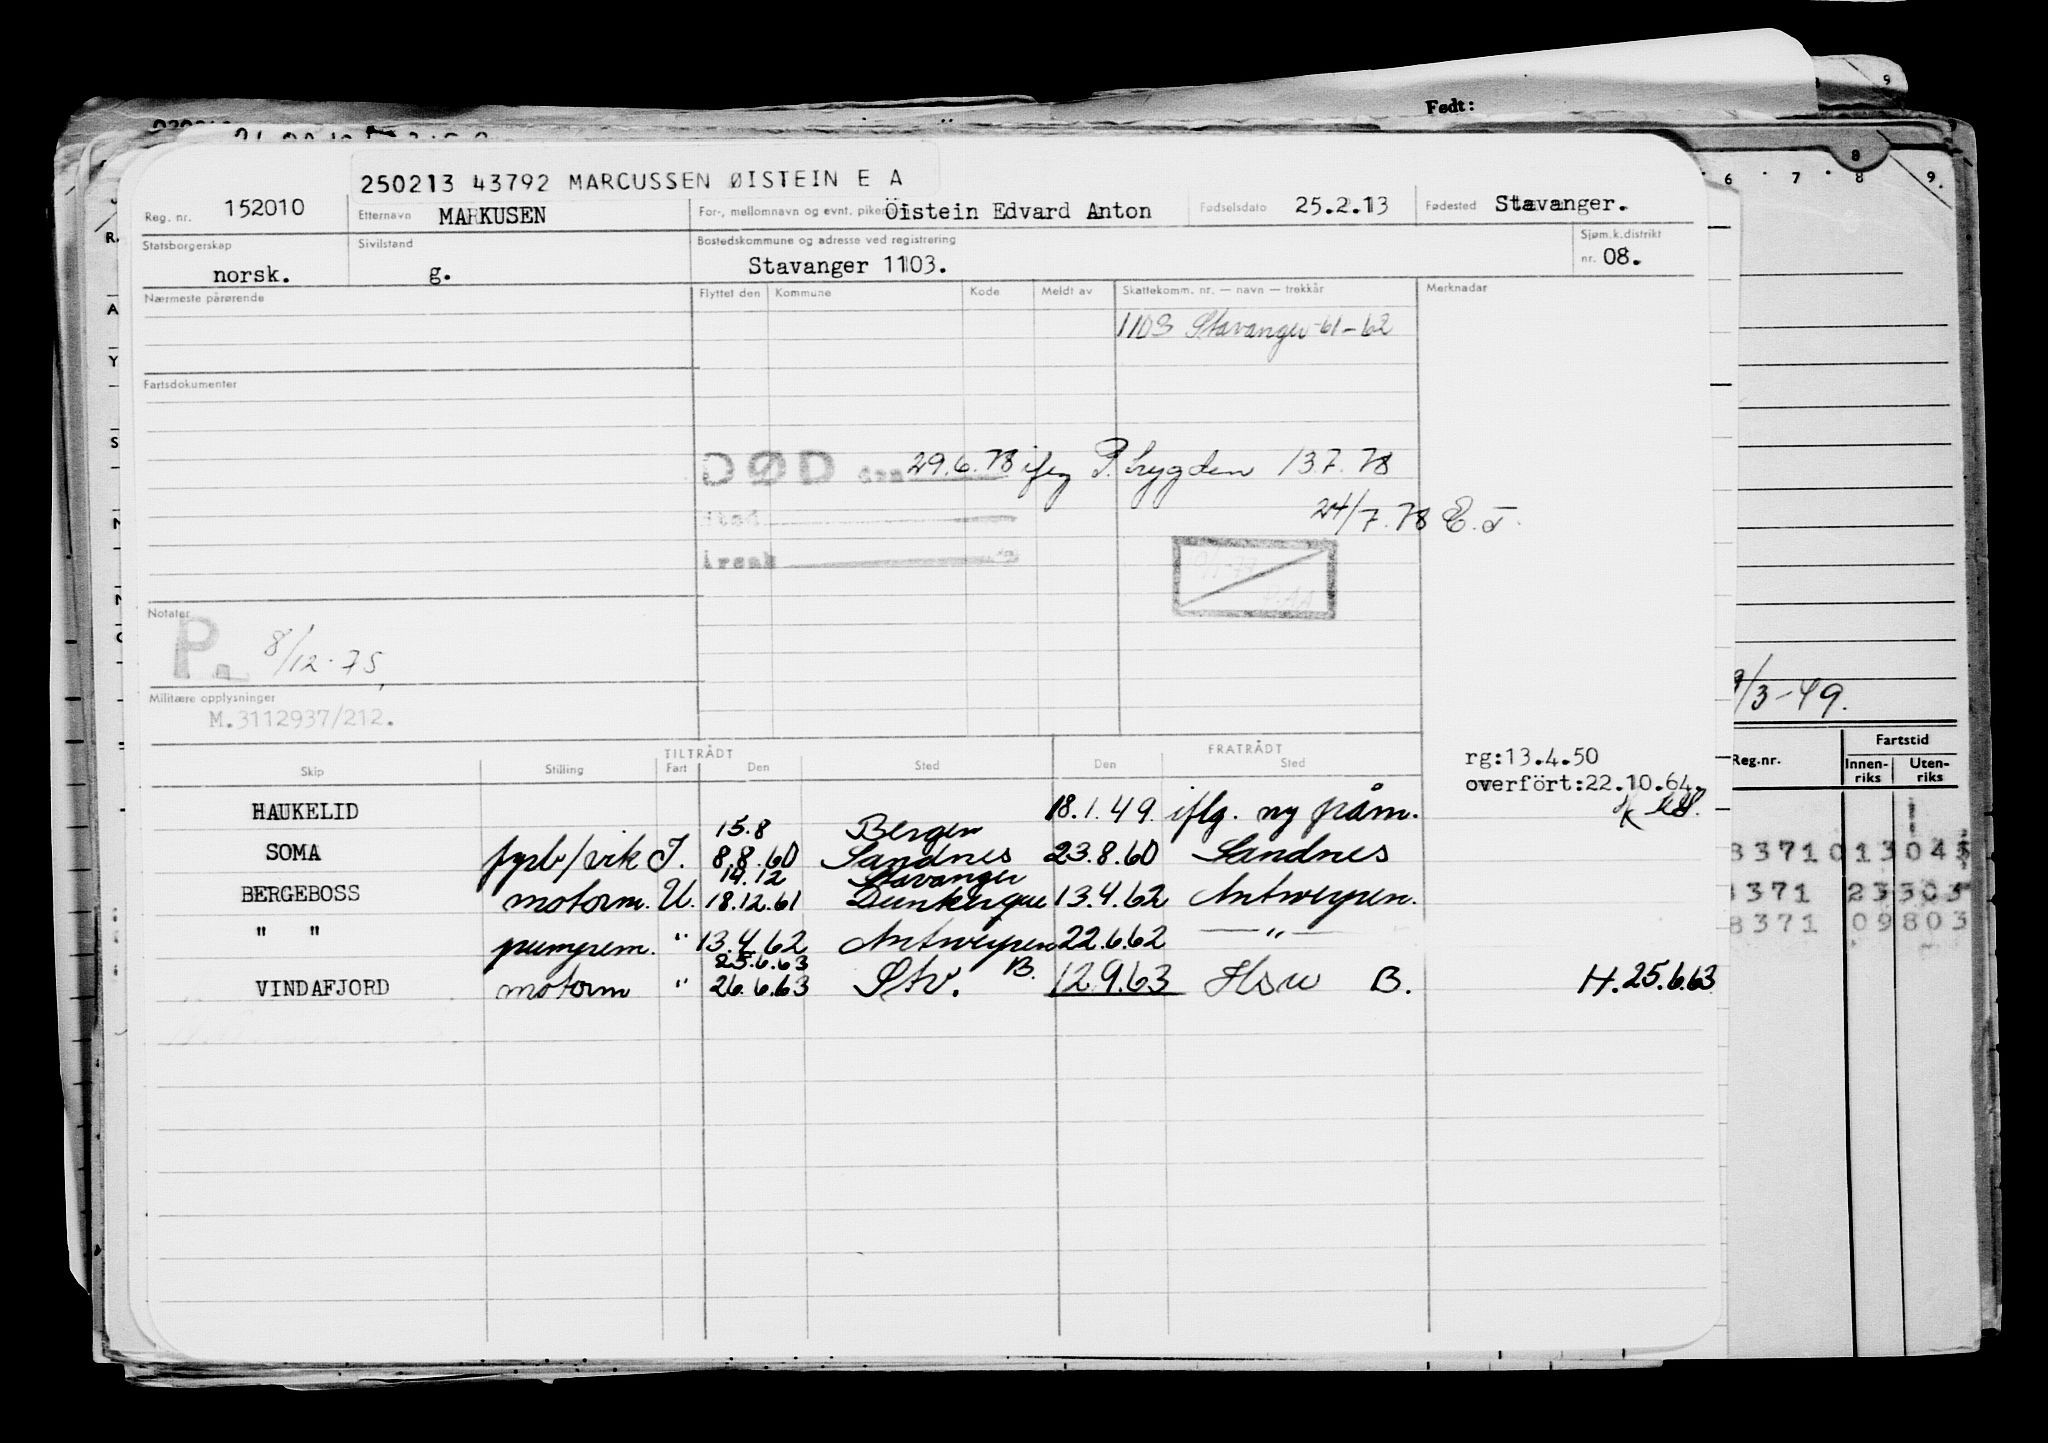 Født:
250213 43792 MARCUSSEN ØISTEIN E A
Reg. nr. 152010 Etternavn MARKUSEN For-, mellomnavn og evnt. Öistein Edvard Anton Fødselsdato 25.2.13 Fødested Stavanger.
Statsborgerskap norsk. Sivilstand g. Bostedskommune og adresse ved registrering Stavanger 1103. Sjøm.k.distrikt nr. 08.
Nærmeste pårørende Flyttet den Kommune Kode Meldt av Skattekomm. nr. — navn — trekkår Merknader
1103 Stavanger 61-62
Fartsdokumenter
DØD den 29.6.78 ifg P. trygden 13.7.78
24/7.78 E.T.
Notater
P. 8/12.75.
Militære opplysninger
M.3112937/212.
9/3-49.
TILTRÅDT FRATRÅDT
Skip Stilling Fart Den Sted Den Sted
rg:13.4.50
overfört:22.10.64.
Reg.nr. Fartstid
Innen-riks Uten-riks
HAUKELID 18.1.49 iflg. ny påm.
15.8 Bergen
SOMA fyrb/vik I. 8.8.60 Sandnes 23.8.60 Sandnes
14.12 Stavanger
BERGEBOSS motorm. U. 18.12.61 Dunkerque 13.4.62 Antwerpen.
" " pumpem. " 13.4.62 Antwerpen 22.6.62 — " —
25.6.63
VINDAFJORD motorm " 26.6.63 Stv. B. 12.9.63 Hsw B. H. 25.6.63